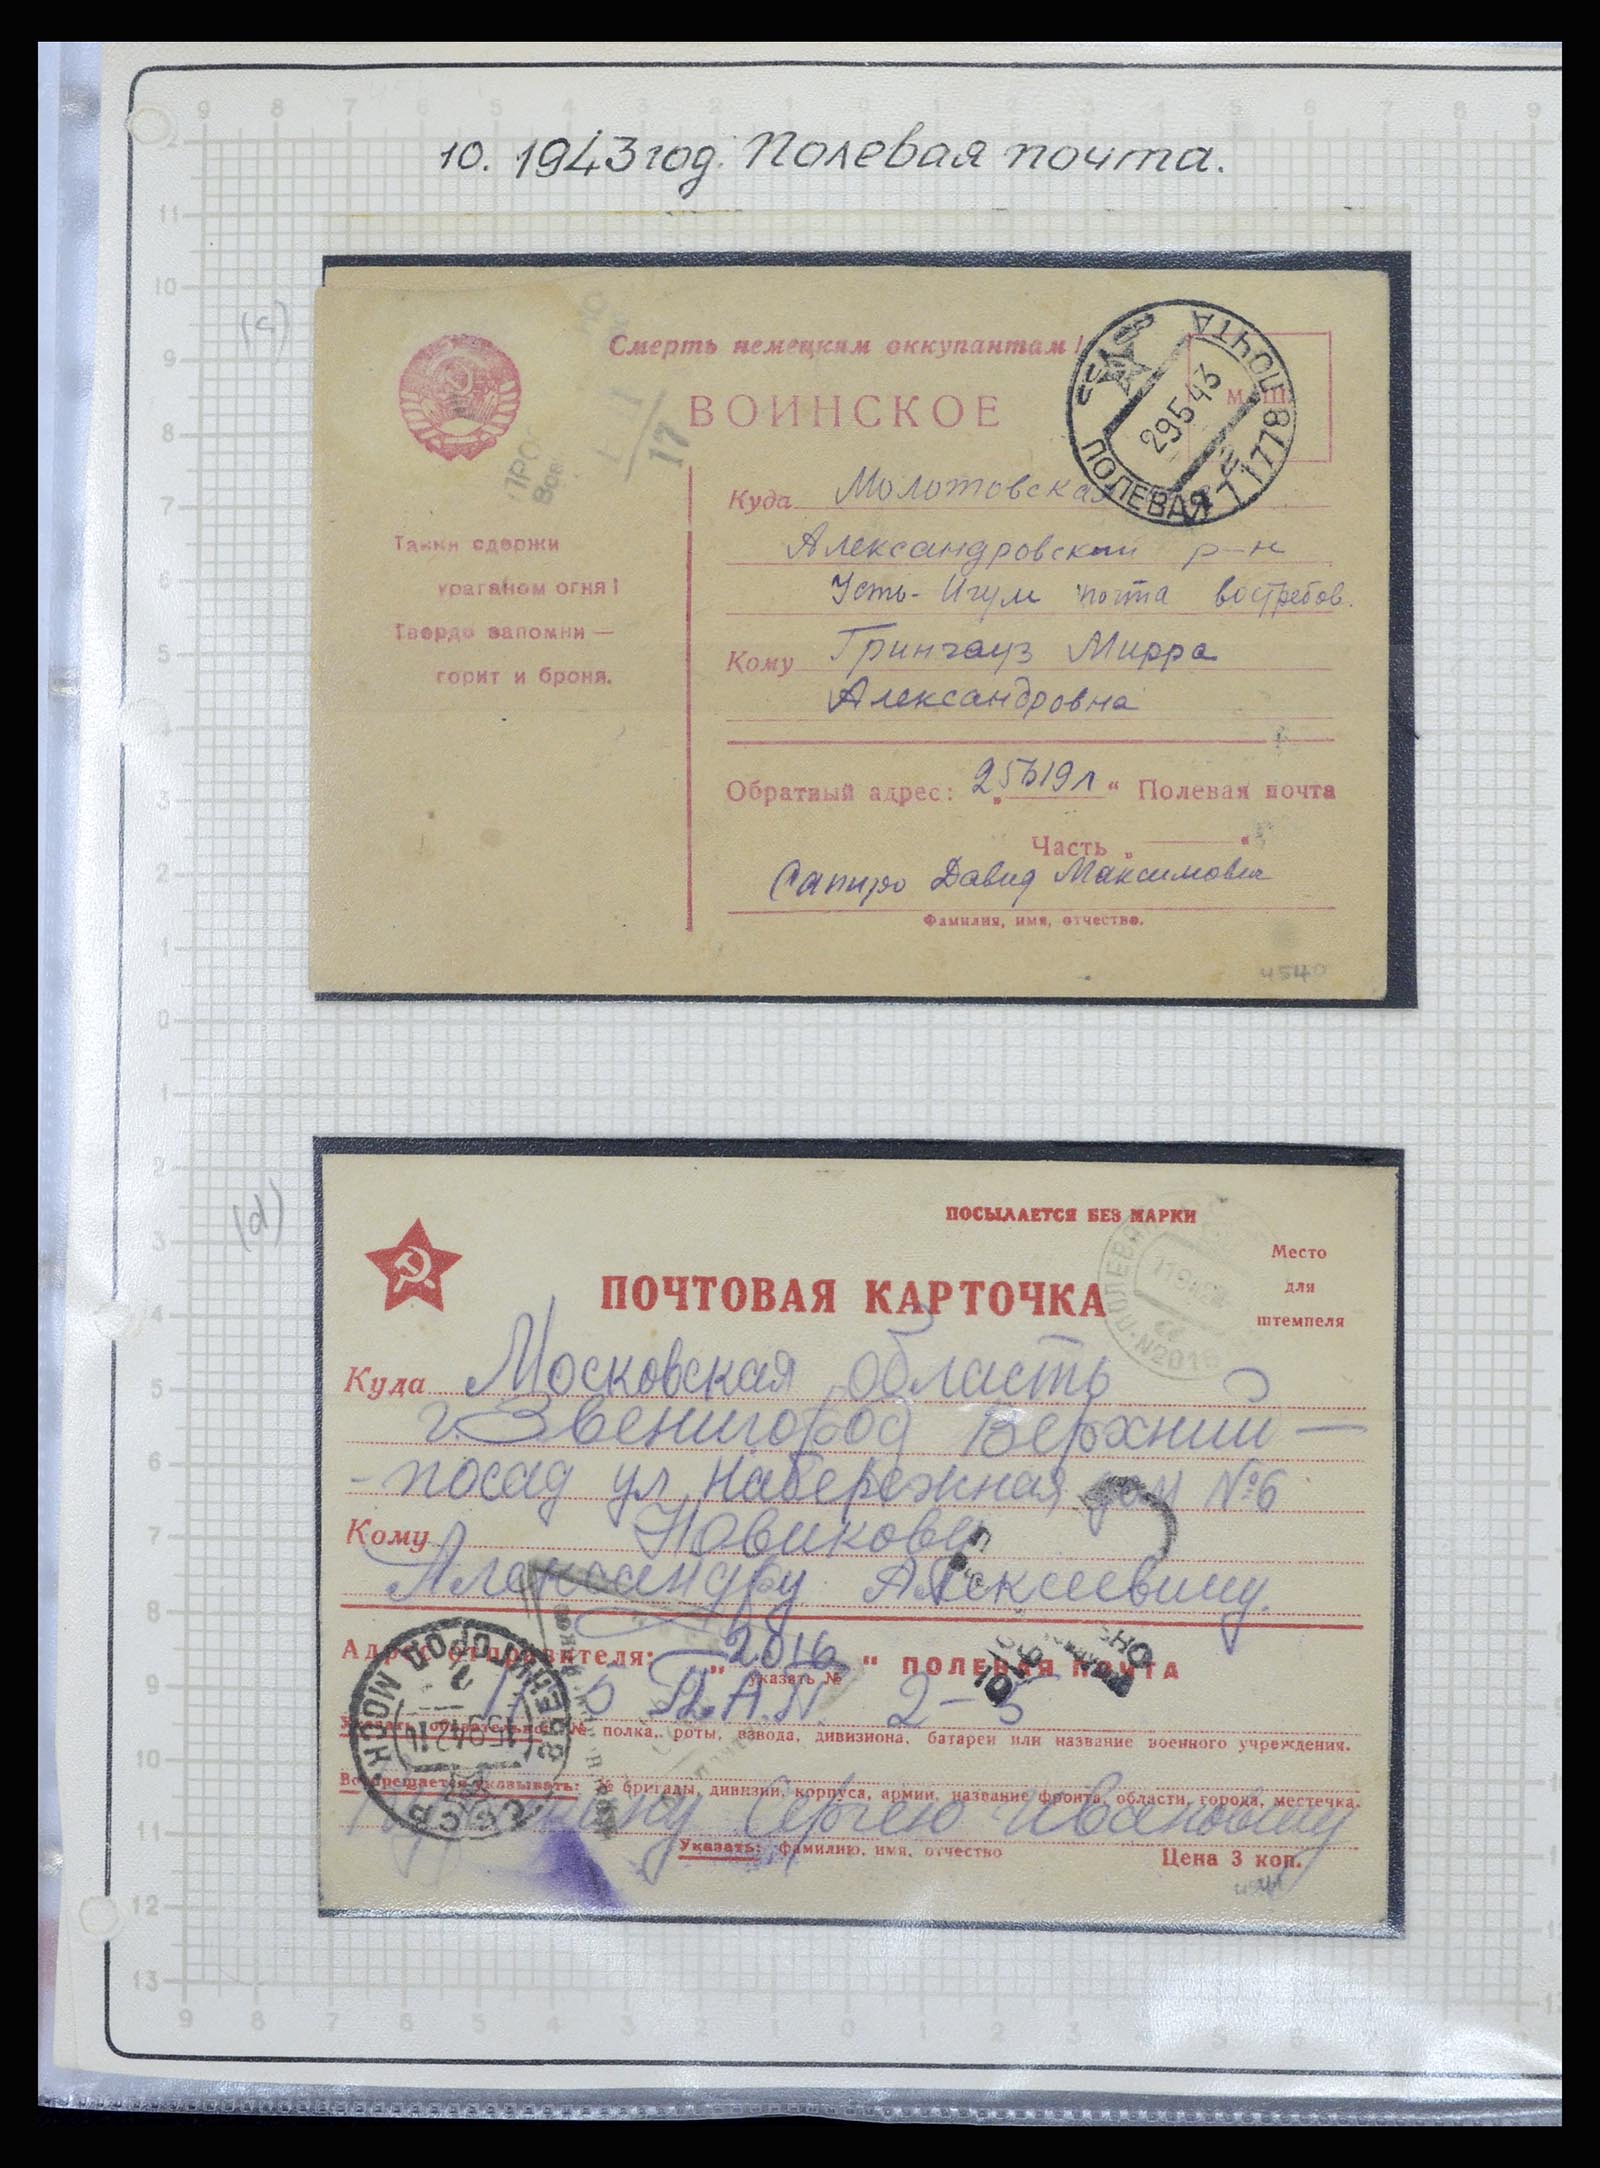 10. 1943 год. Полевая почта.
(c)
Смерть немецким оккупантам!
ВОИНСКОЕ
ПОЛЕВАЯ ПОЧТА
29 5 43
17
Куда Молотовская
Александровский р-н
Усть-Игум почта востребов.
Танки сдержи
ураганом огня!
Твердо запомни —
горит и броня.
Кому Грингауз Мирра
Александровна
Обратный адрес: „ 25619л “ Полевая почта
Часть „ “
Сапиро Давид Максимович
Фамилия, имя, отчество.
4540
(d)
ПОСЫЛАЕТСЯ БЕЗ МАРКИ
Место
для
штемпеля
ПОЧТОВАЯ КАРТОЧКА
N2016
Куда Московская область
г. Звенигород Верхний —
- посад ул. Набережная дом №6
Кому Новикову
Александру Алексеевичу.
Адрес отправителя: „ 2016 “ ПОЛЕВАЯ ПОЧТА
указать №
П.А.П. 2-5
Указать обязательно: № полка, роты, взвода, дивизиона, батареи или название военного учреждения.
Воспрещается указывать: № бригады, дивизии, корпуса, армии, название фронта, области, города, местечка.
Сергею Ивановичу
Указать: фамилию, имя, отчество
Цена 3 коп.
4541